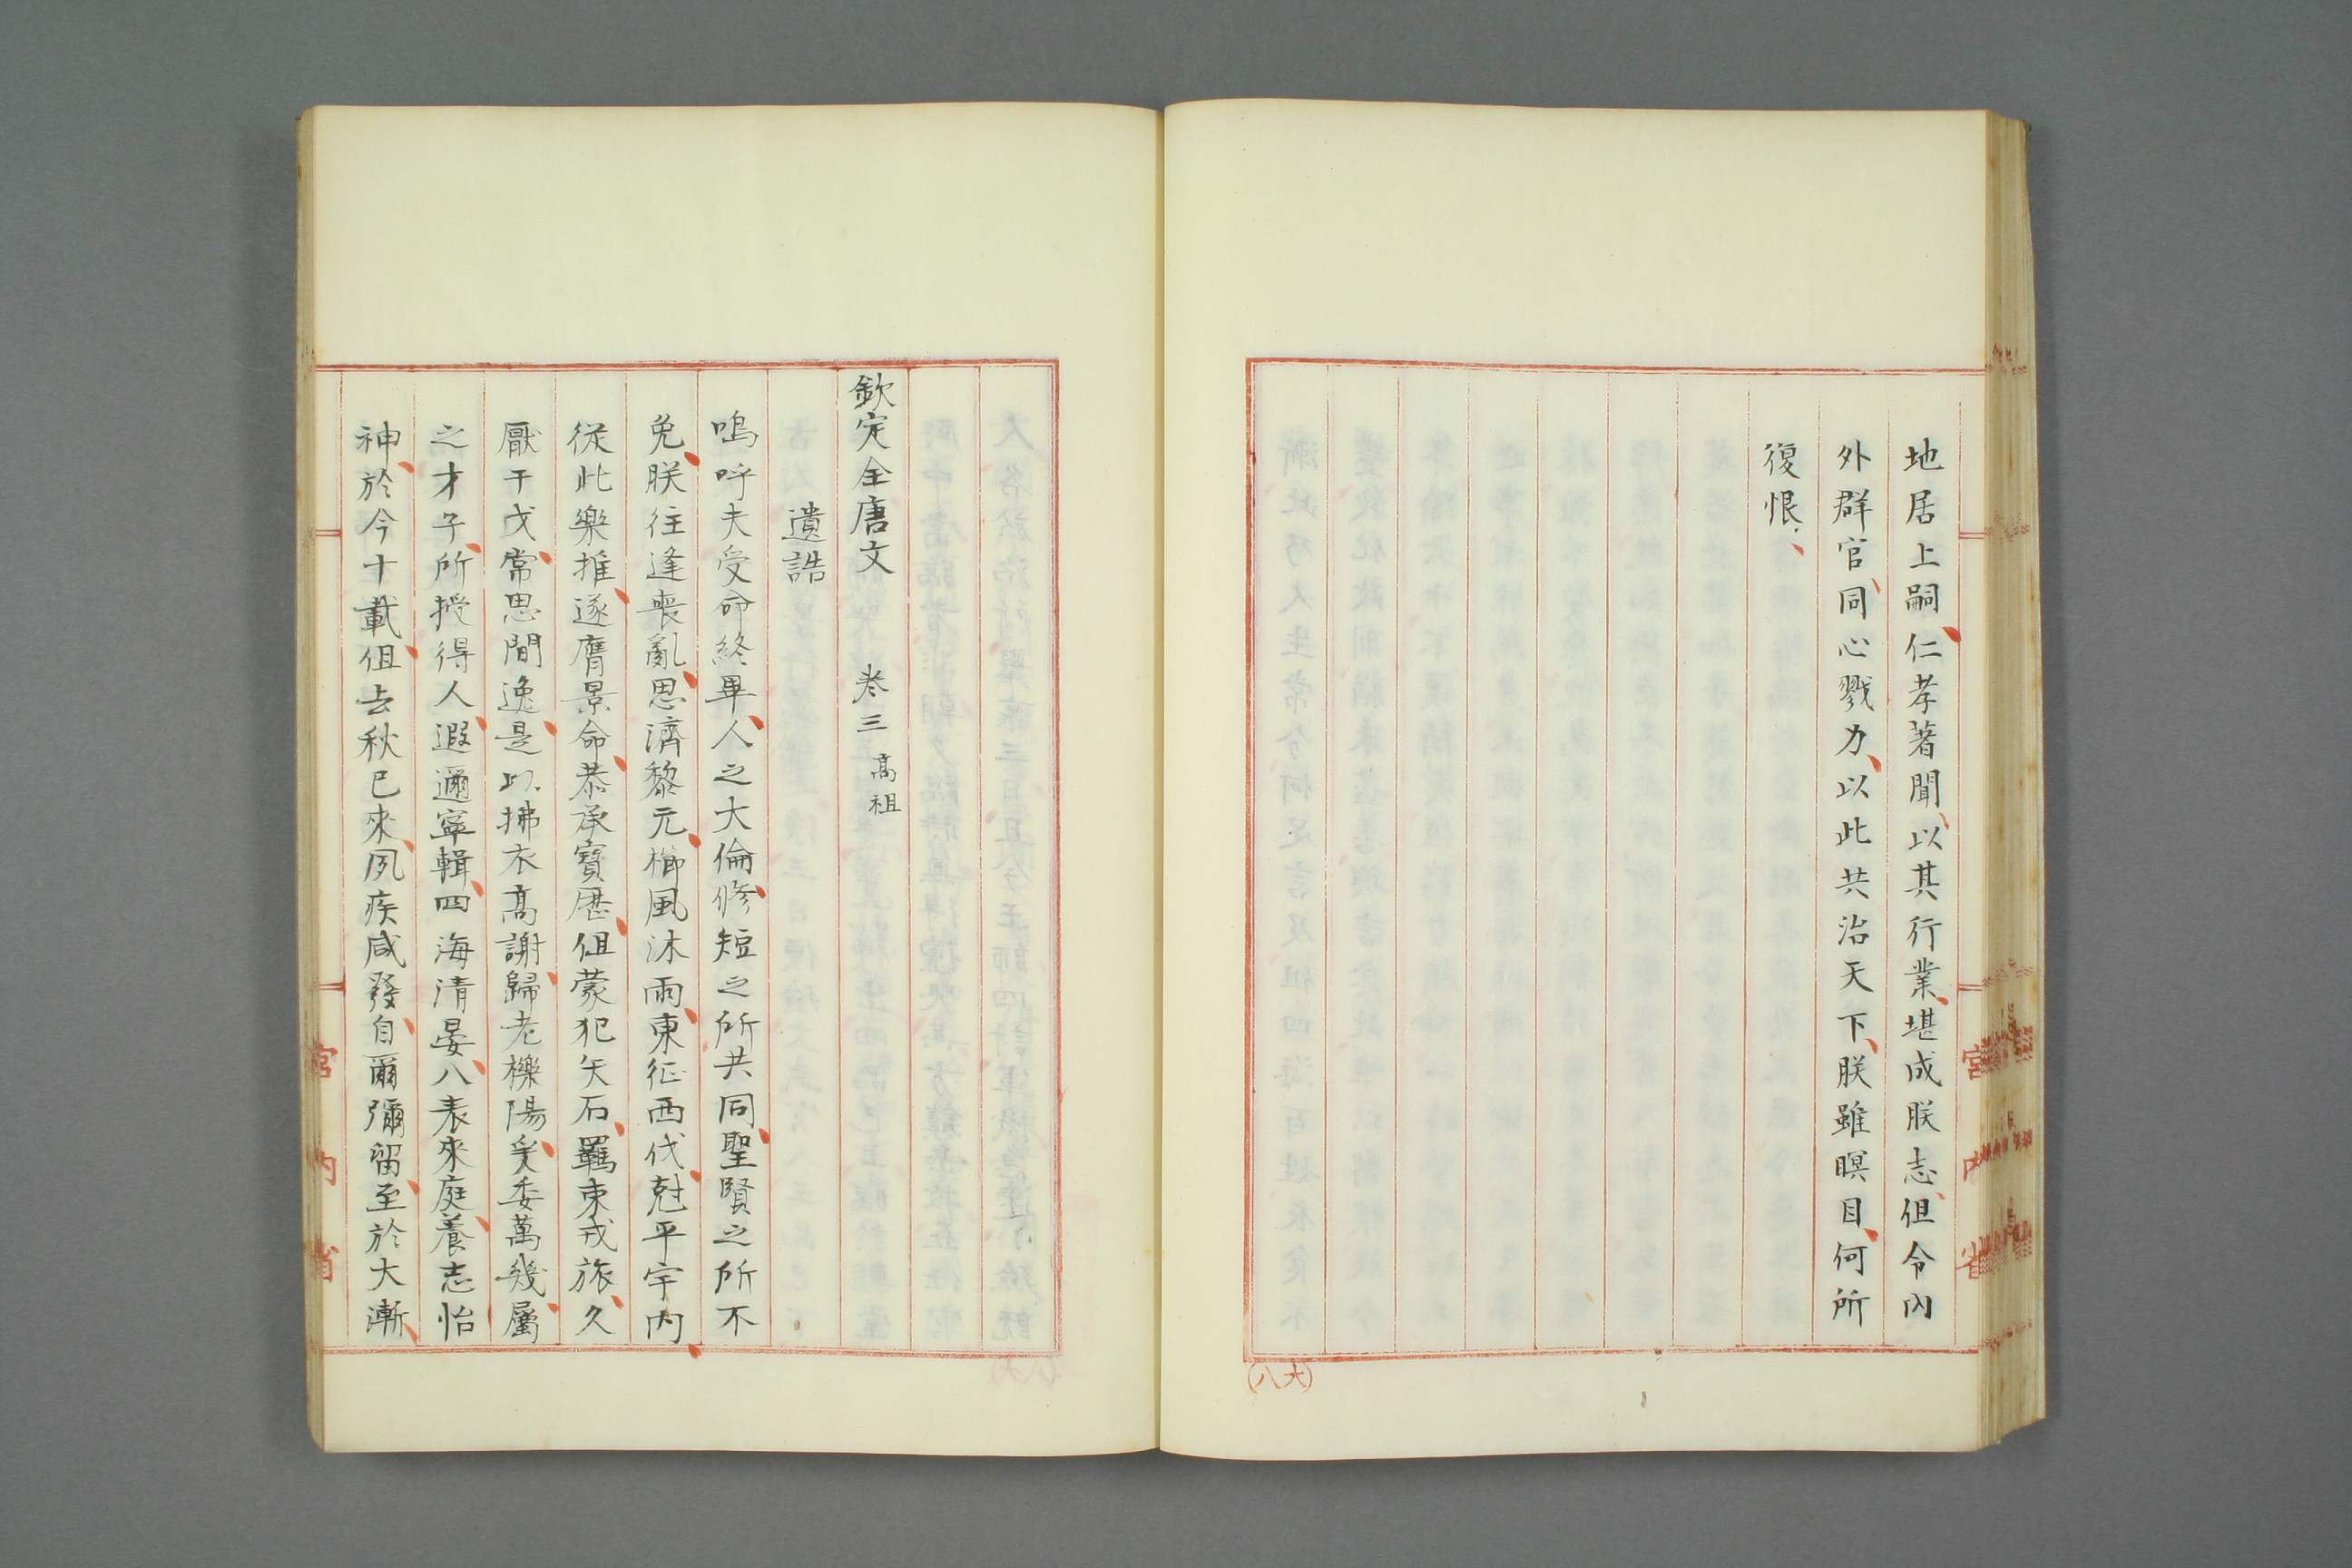 地居上嗣仁孝著聞以其行業堪成朕志但令內
外群官同心戮力以此共治天下朕雖瞑目何所
復恨
(大八)
宮內省
欽定全唐文 卷三 高祖
遺誥
嗚呼夫受命終畢人之大倫修短之所共同聖賢之所不
免朕往逢喪亂思濟黎元櫛風沐雨東征西伐尅平宇內
從此樂推遂膺景命恭承寶歷但蒙犯矢石羈束戎旅久
厭干戈常思閒逸是以拂衣高謝歸老櫟陽爰委萬幾屬
之才子所授得人遐邇寧輯四海清晏八表來庭養志怡
神於今十載但去秋已來夙疾咸發自爾彌留至於大漸
宮內省